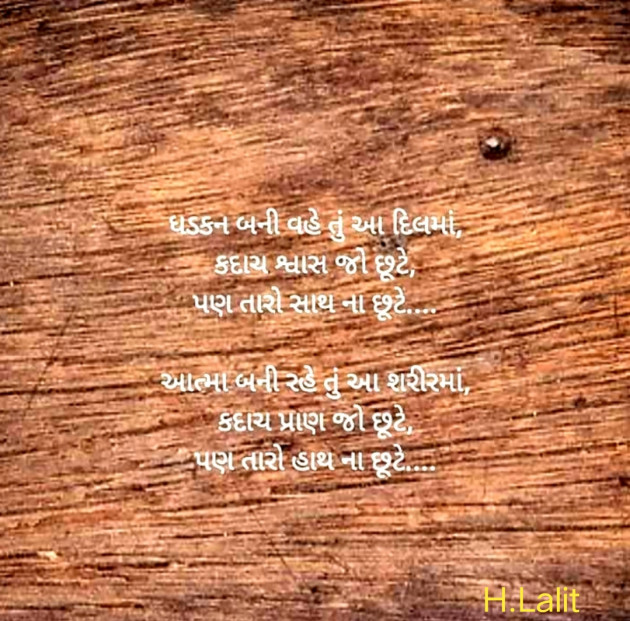 ધડકન બની વહે તું આ દિલમાં,
કદાચ શ્વાસ જો છૂટે,
પણ તારો સાથ ના છૂટે....
આત્મા બની રહે તું આ શરીરમાં,
કદાચ પ્રાણ જો છૂટે,
પણ તારો હાથ ના છૂટે....
H.Lalit